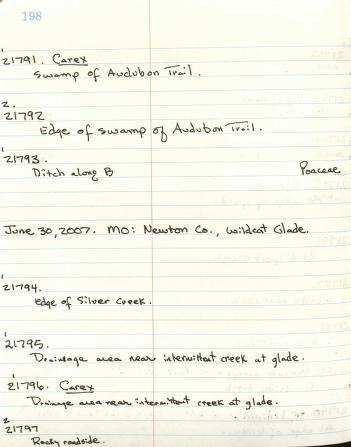 198
1
21791. Carex
Swamp of Audubon Trail.
2.
21792
Edge of swamp of Audubon Trail.
1
21793.
Ditch along B Poaceae
June 30, 2007. MO: Newton Co., Wildcat Glade.
1
21794.
Edge of Silver Creek.
1
21795.
Drainage area near intermittent creek at glade.
1
21796. Carex
Drainage area near intermittent creek at glade.
2
21797
Rocky roadside.